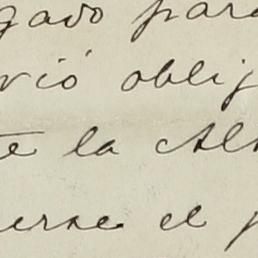 gado para
vió oblig
te la Al
erse el p